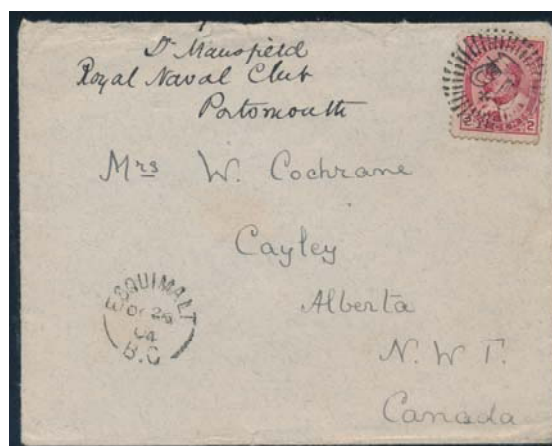 Dr Mansfield
Royal Naval Club
Portsmouth
Mrs W. Cochrane
Cayley
Alberta
N. W T.
Canada
ESQUIMALT
OC 26
04
B.C
2 2